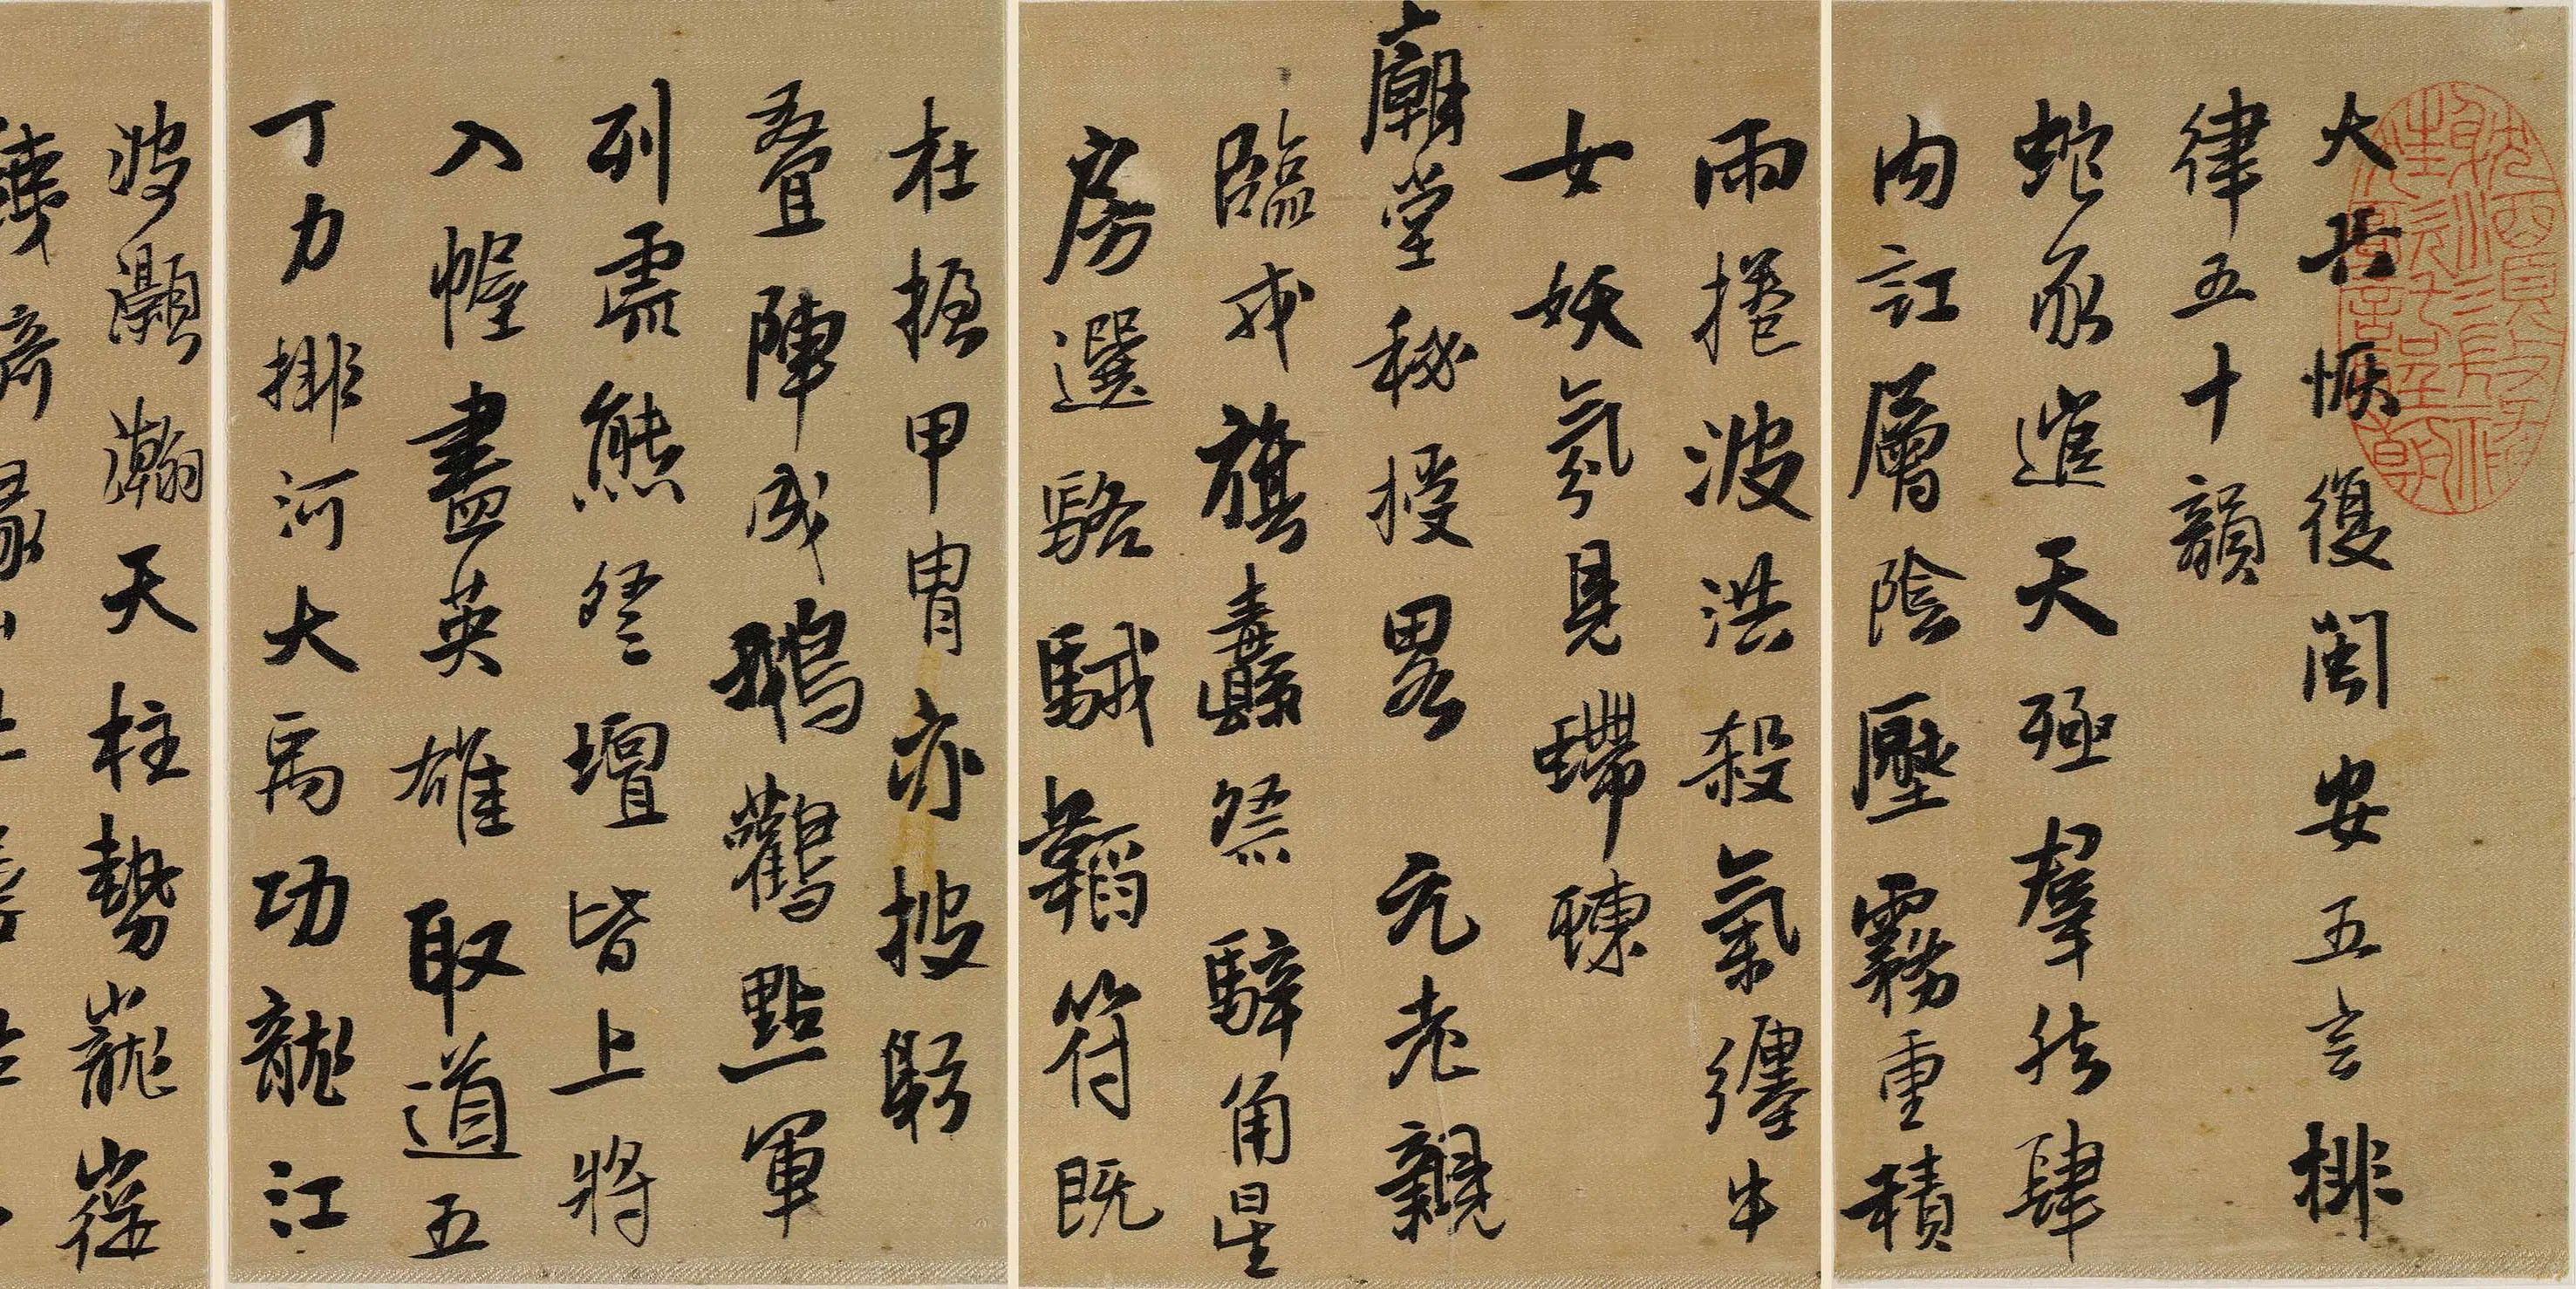 大兵恢復閩安五言排
律五十韻
蛇豕進天極羣然肆
內訌層陰壓霧重積
雨捲波洪殺氣纏牛
女妖氛見螮蝀
廟堂秘授畧元老親
臨戎旗纛祭騂角星
房選駱駥韜符既
在握甲冑亦披躬
叠陣成鵝鸛點軍
列羆熊登壇皆上將
入幄盡英雄取道五
丁力排河大禹功龍江
波灝瀚天柱勢巃嵷